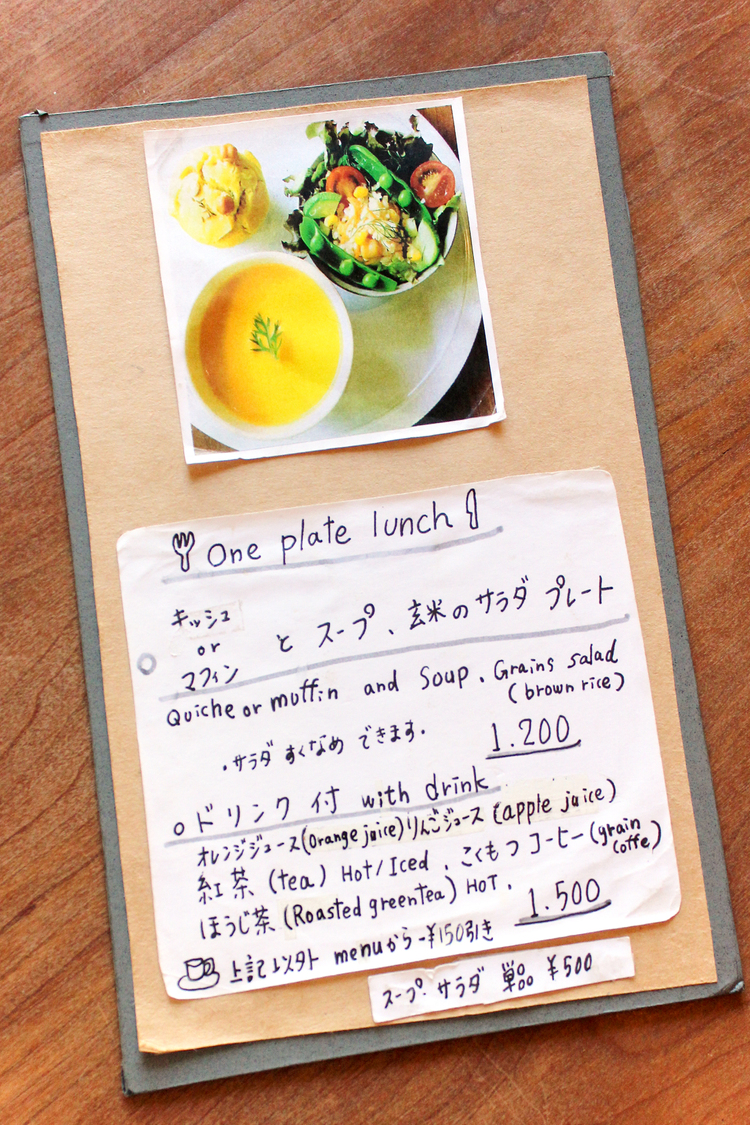 One plate lunch
キッシュ
or
マフィン
と スープ、玄米のサラダ プレート
Quiche or muffin and Soup. Grains salad
(brown rice)
・サラダ すくなめ できます。
1.200
○ドリンク付 with drink
オレンジジュース(Orange juice)りんごジュース(apple juice)
紅茶(tea) Hot/Iced. こくもつコーヒー(grain coffe)
ほうじ茶(Roasted green tea) HOT.
1.500
上記以外 menuから-¥150引き
スープ・サラダ 単品 ¥500